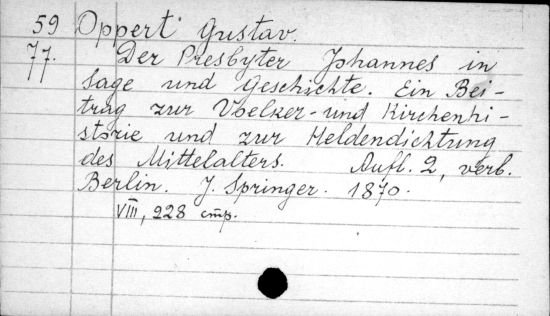 59 Oppert Gustav.
77. Der Presbyter Johannes in
Sage und Geschichte. Ein Bei-
trag zur Voelker- und Kirchenhi-
storie und zur Heldendichtung
des Mittelalters. Aufl. 2, verb.
Berlin. J. Springer. 1870.
VIII, 228 стр.